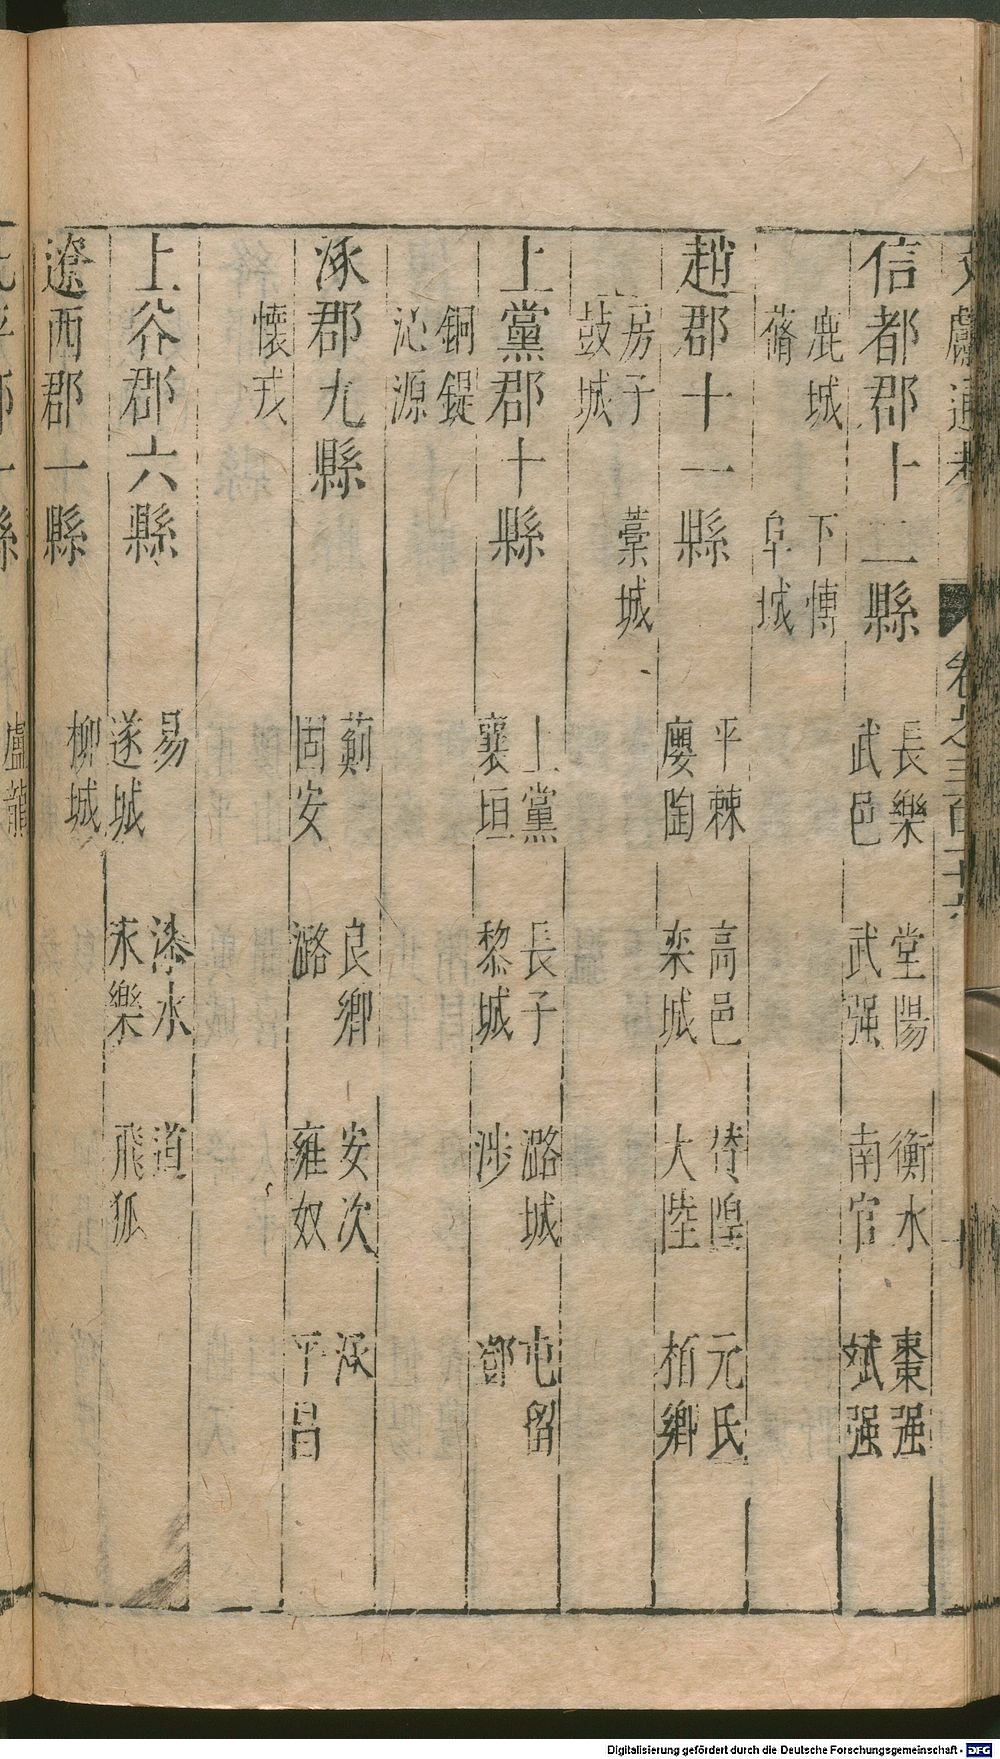 文獻通考 卷之三百十六 十
信都郡十二縣
長樂 堂陽 衡水 棗强
武邑 武强 南宮 斌强
鹿城 下博
蓨 阜城
趙郡十一縣
平棘 高邑 贊皇 元氏
廮陶 欒城 大陸 栢鄉
房子 藁城
鼓城
上黨郡十縣
上黨 長子 潞城 屯留
襄垣 黎城 涉 鄉
銅鍉
沁源
涿郡九縣
薊 良鄉 安次 涿
固安 潞 雍奴 平昌
懷戎
上谷郡六縣
易 淶水 遒
遂城 永樂 飛狐
遼西郡一縣
柳城
北平郡一縣
盧龍
Digitalisierung gefördert durch die Deutsche Forschungsgemeinschaft - DFG